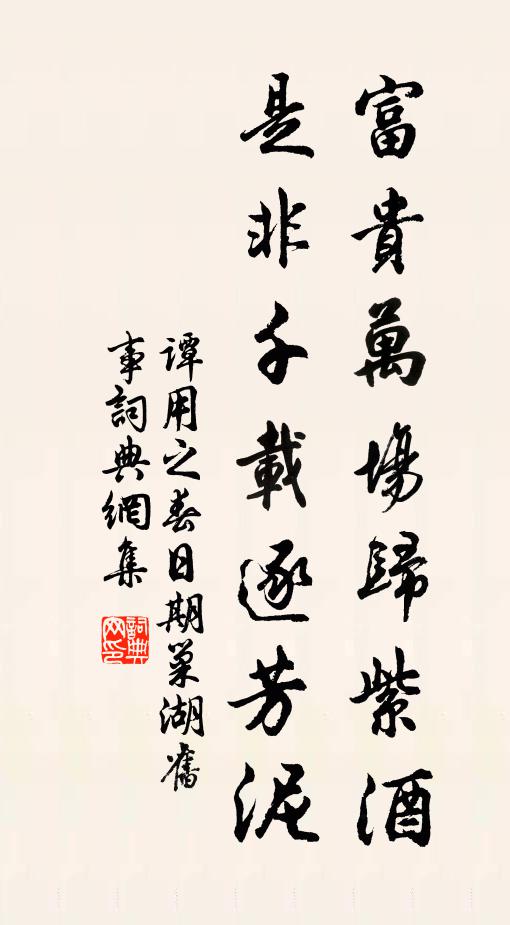 富貴萬場歸紫酒
是非千載逐芳泥
谭用之春日期巢湖舊
事詞典網集
詞典网印